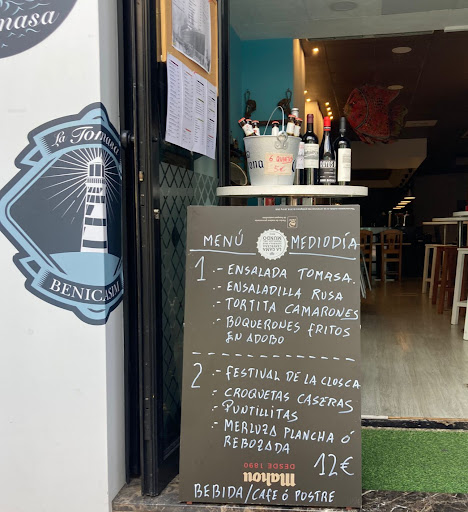 omasa
La Tomasa
BENICASIM
6 QUINTOS
5€
MENÚ MEDIODÍA
1 .- ENSALADA TOMASA.
.- ENSALADILLA RUSA
.- TORTITA CAMARONES
.- BOQUERONES FRITOS
EN ADOBO
2 .- FESTIVAL DE LA CLOSCA
.- CROQUETAS CASERAS
.- PUNTILLITAS
.- MERLUZA PLANCHA Ó
REBOZADA
12€
Mahou
DESDE 1890
BEBIDA/CAFE Ó POSTRE